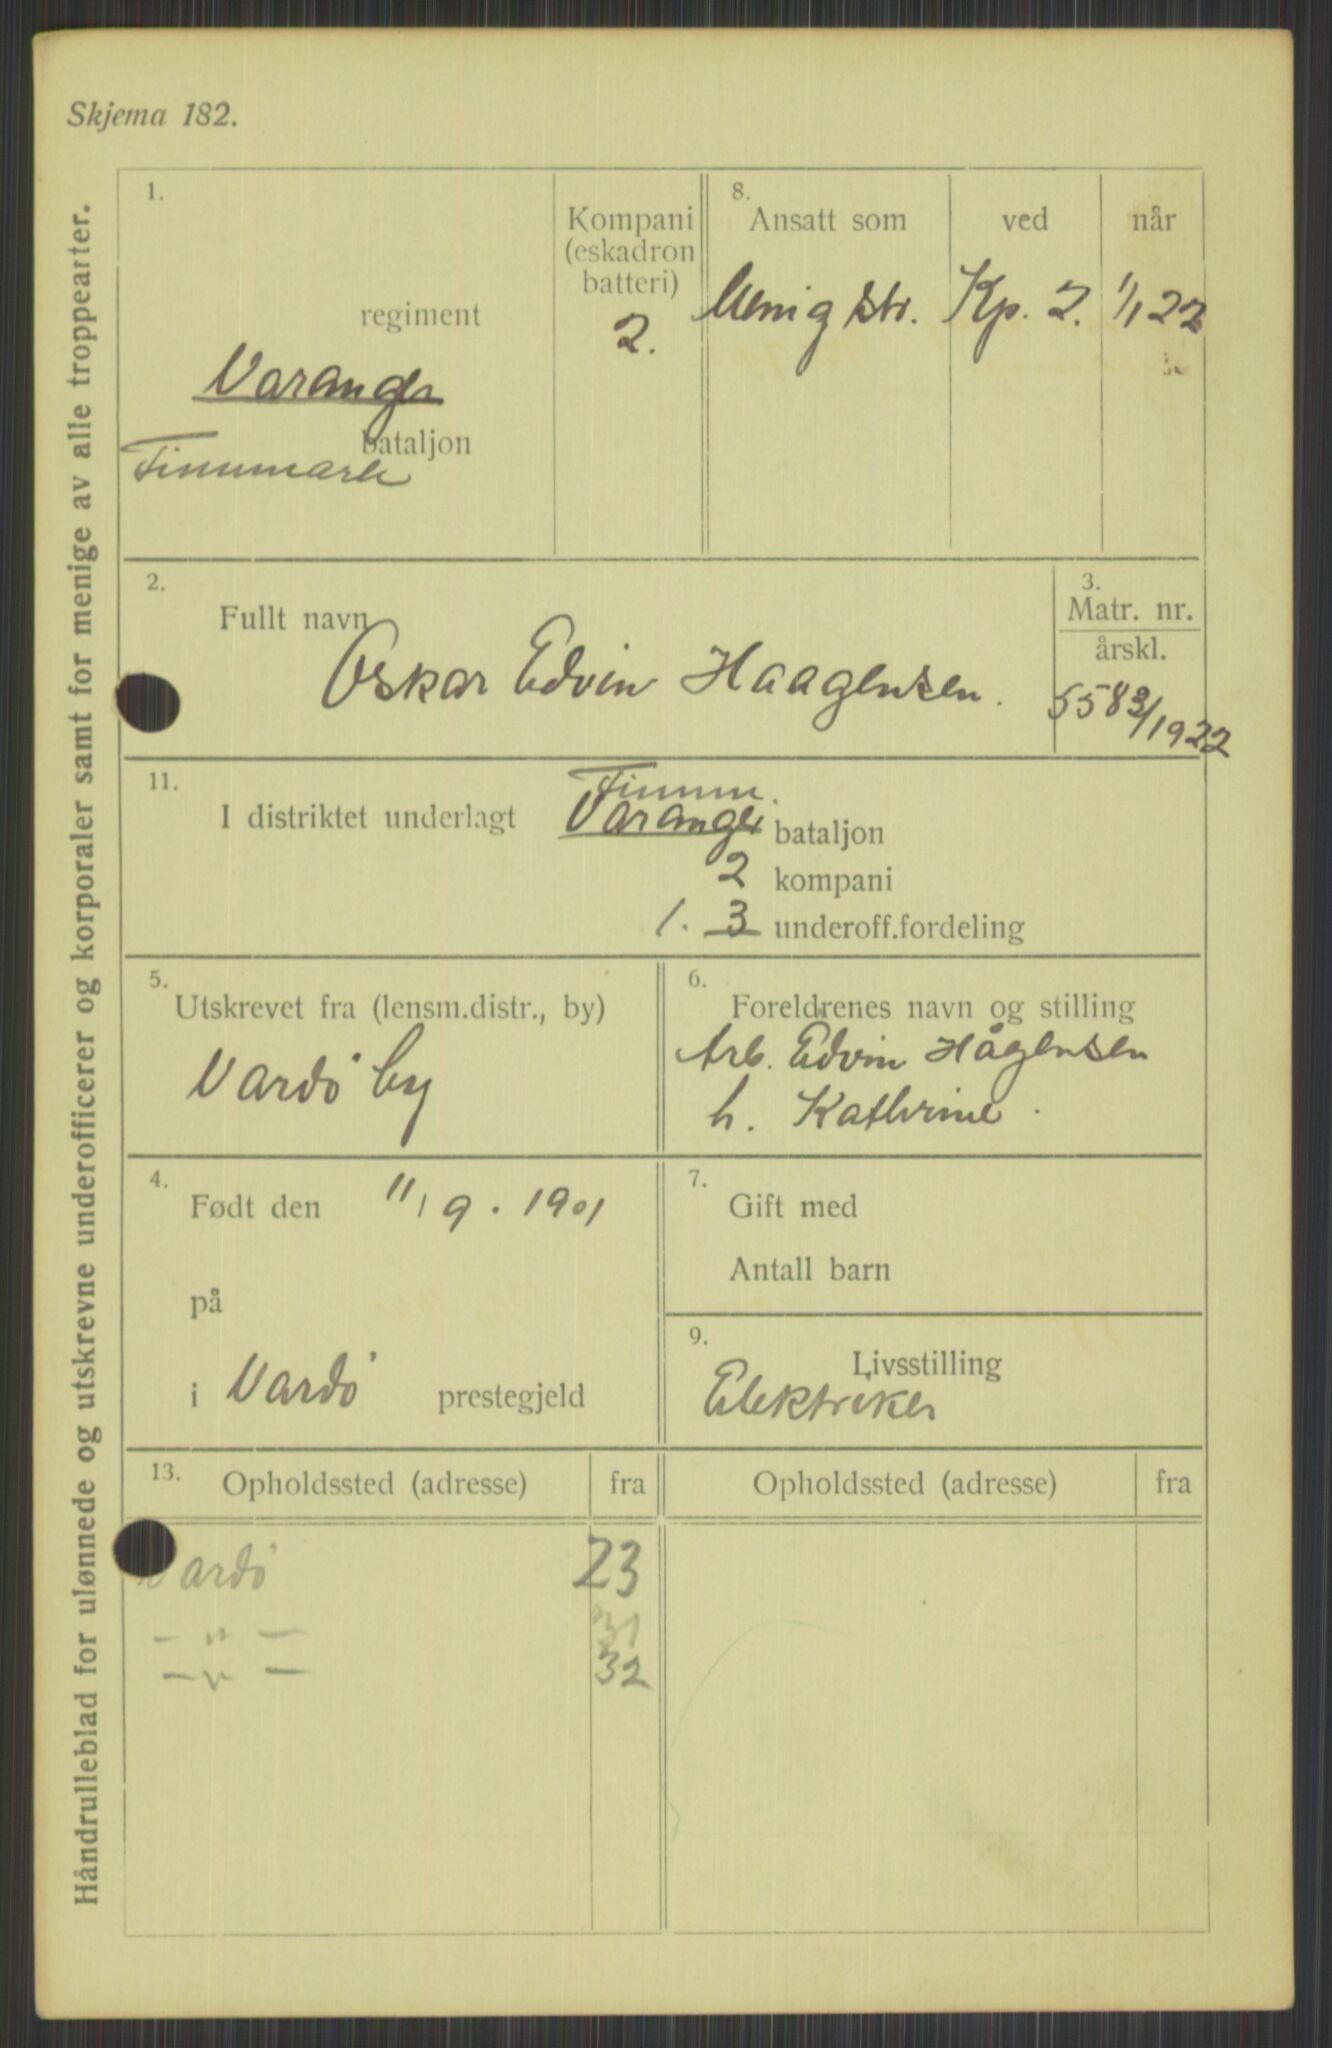 Skjema 182.
Håndrulleblad for ulønnede og utskrevne underofficerer og korporaler samt for menige av alle troppearter.
1.
regiment
Varanger
bataljon
Finnmark
Kompani
(eskadron
batteri)
2.
8.
Ansatt som
ved
når
Menig str.
Kp. 2.
1/1 22
2.
Fullt navn
Oskar Edvin Haagensen.
3.
Matr. nr.
årskl.
5583/1922
11.
Finnm.
I distriktet underlagt Varanger bataljon
2 kompani
1. 3 underoff.fordeling
5.
Utskrevet fra (lensm.distr., by)
Vardø by
6.
Foreldrenes navn og stilling
Arb. Edvin Hågensen
h. Kathrine
4.
Født den 11/9. 1901
på
i Vardø prestegjeld
7.
Gift med
Antall barn
9.
Livsstilling
Elektriker
13.
Opholdssted (adresse) fra
Opholdssted (adresse) fra
Vardø 23
— " — 31
— " — 32